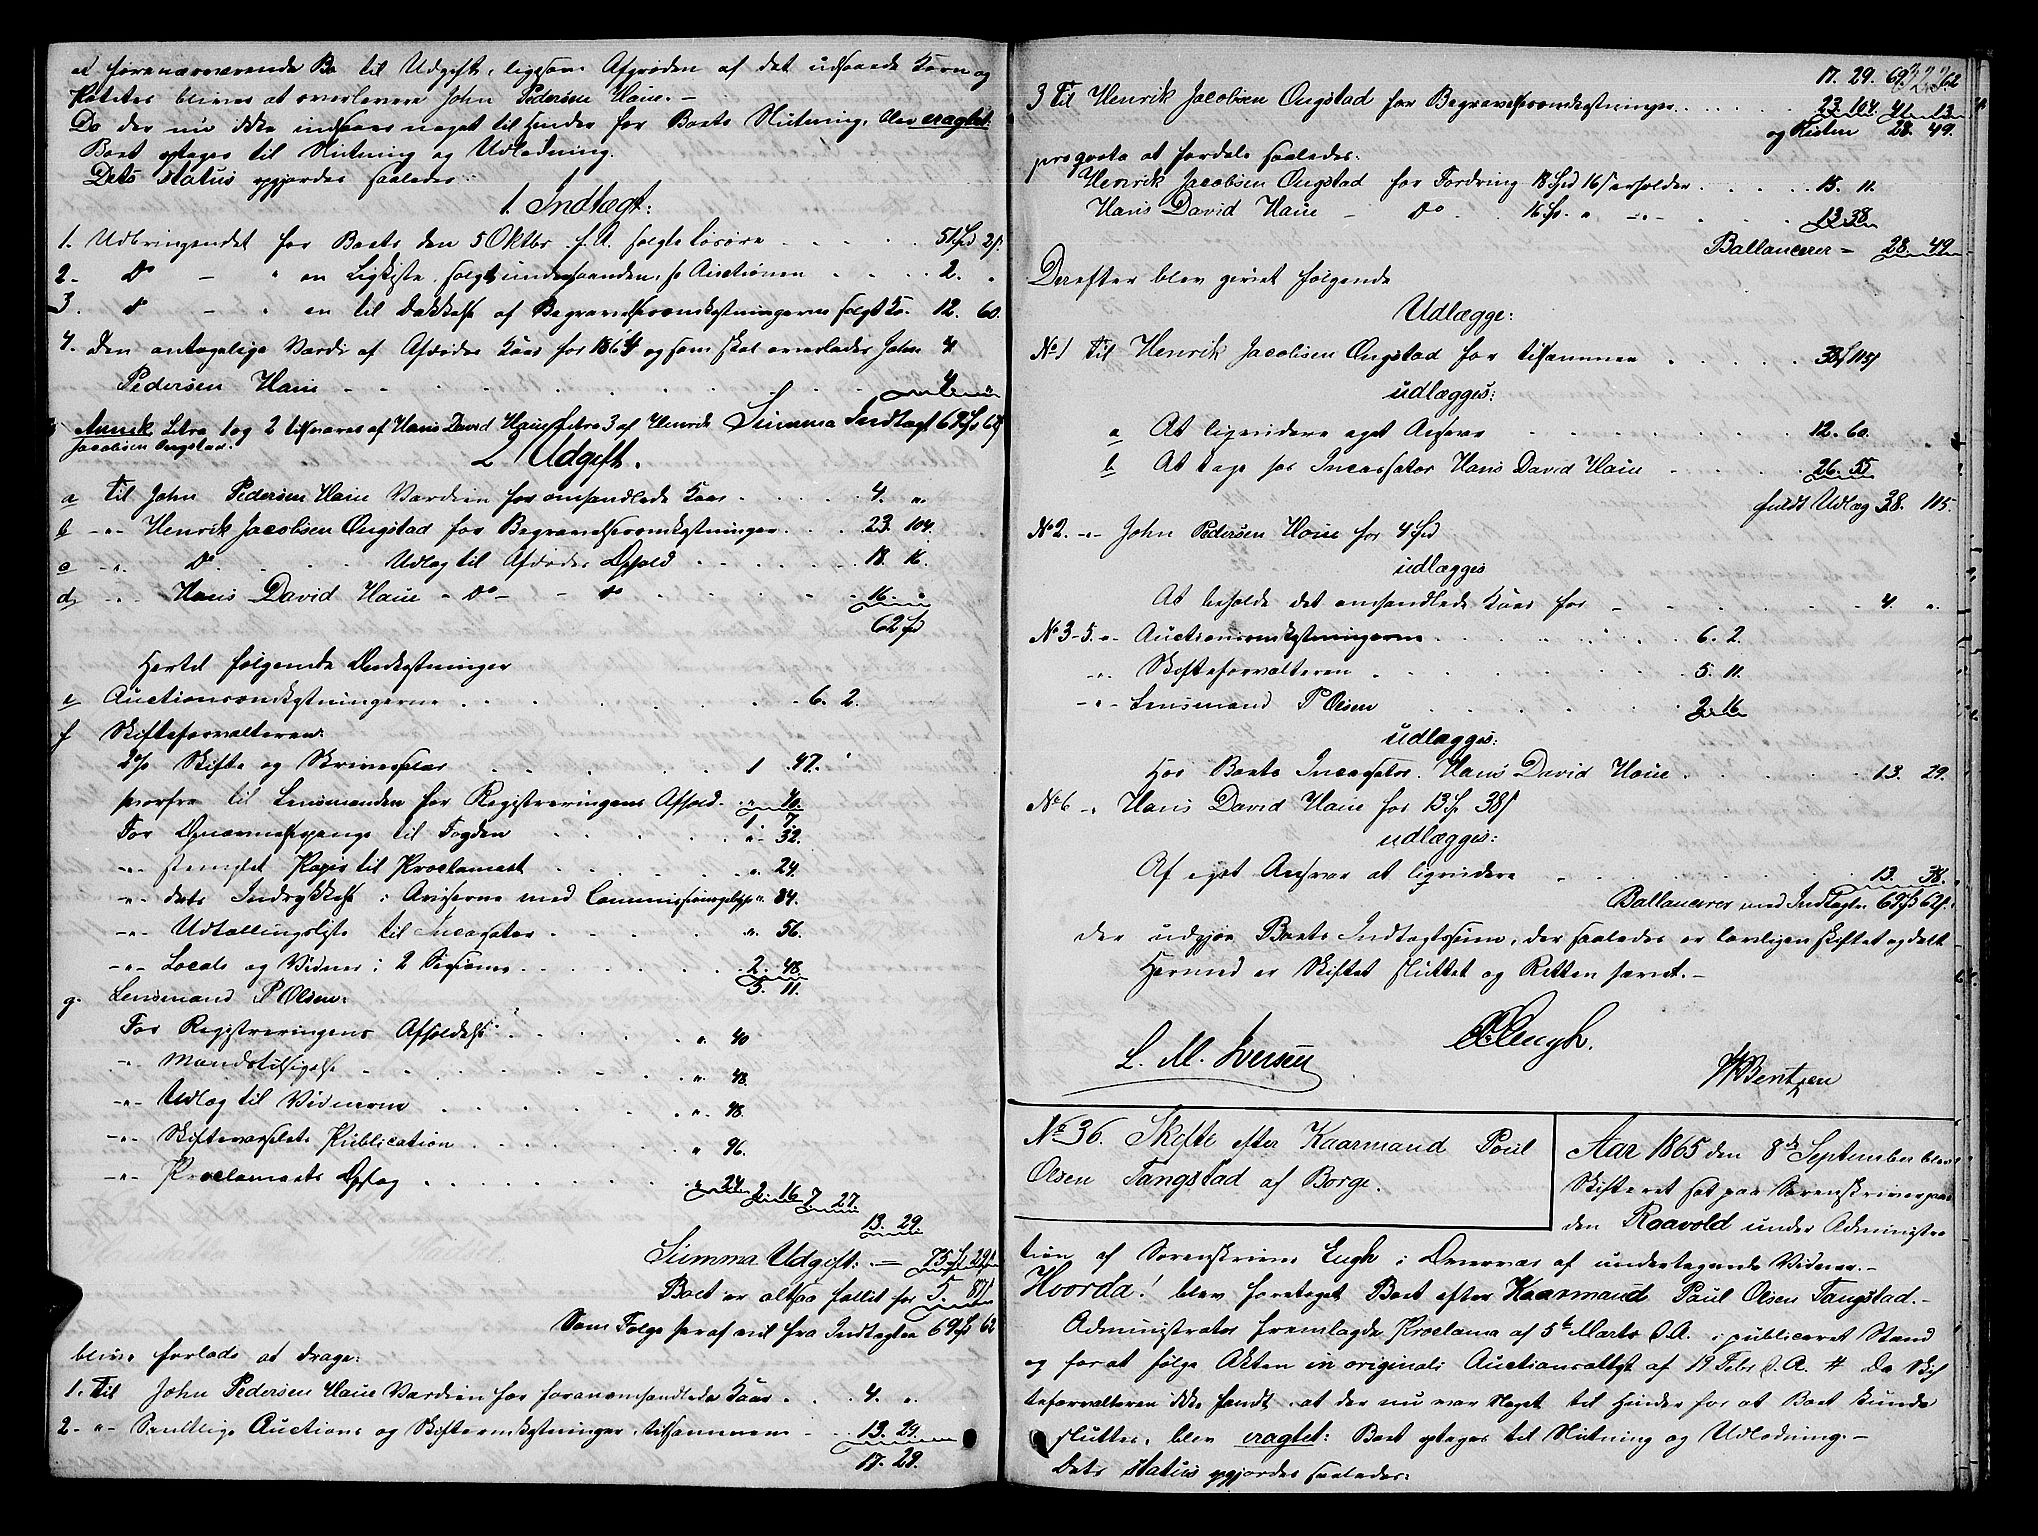 et førenærværende Bo til Udgift, ligesom Afgrøden af det udsaaede Korn og
Potetes bliver at overlevere John Pedersen Haue.-
Da der nu ikke indsaaes noget til Hinder for Boets Slutning, blev eragtet:
Boet optages til Slutning og Udlodning.
Dets Status opgjordes saaledes:
1. Indtægt:
1. Udbringendet for Boets den 5 Oktbr f.A. solgte Løsøre 51 Spd 2 s.
2- Do - " en Ligkiste, solgt underhaanden, se Auctionen 2. "
3. do - " en til Dækkelse af Begravelsesomkostningerne solgt Ko. 12. 60.
4. Den antagelige Værdi af Afdødes Kaar for 1864 og som skal overlades John
Pedersen Haue 4. "
Anmk. Litra 1 og 2 tilsvares af Hans David Haue Litra 3 af Henrik Summa Indtægt 69 Sp 62 s
Jacobsen Ongstad.
2 Udgift.
a Til John Pedersen Haue Værdien for omhandlede Kaar 4. "
b -"- Henrik Jacobsen Ongstad for Begravelsesomkostninger 23. 104.
c -"- Do. Udlæg til Afdødes Ophold 18. 16.
d -"- Hans David Haue - Do - - do 16. "
62 Sp
Hertil følgende Omkostninger
e Auctionsomkostningerne 6. 2.
f Skifteforvalteren:
2% Skifte og Skriversalær 1. 47.
hvorfra til Lensmanden for Registreringens Afhold " 40.
1. 7.
For Opnævnelsespenge til Fogden " 32.
-"- stemplet Papir til Proclamaet " 24.
-"- dets Indrykkelse i Aviserne med Commissionsgebyr " 84.
-"- Udtællingsliste til Incassator " 56.
-"- Locale og Vidner i 2 Sessioner 2. 48.
5. 11.
g. Lensmand P Olsen:
For Registreringens Afholdelse " 40
-"- Mandstilsigelse " 48.
-"- Udlæg til Vidnerne " 48
-"- Skiftevarselets Publication " 96.
-"- Proclamaets Opslag " 24 2. 16. 7 27.
13. 29.
Summa Udgift: - 75 Sp 29 s
Boet er altsaa fallit for 5. 87 s
Som Følge heraf vil fra Indtægten 69 Sp 62
blive forlods at drage:
1. Til John Pedersen Haue Værdien for foranomhandlede Kaar 4. "
2. -"- Samtlige Auctions og Skifteomkostninger tilsammen 13. 29.
17. 29.
17. 29. 69 Sp 62
3 Til Henrik Jacobsen Ongstad for Begravelsesomkostninger 23. 104 41. 13
og Resten 28. 49.
pro qvota at fordele saaledes:
Henrik Jacobsen Ongstad for Fordring 18 Spd 16 s erholder 15. 11.
Hans David Haue - Do 16 Sp. " -"- 13. 38.
Ballancerer - 28. 49
Derefter blev gjort følgende
Udlægge:
No 1 Til Henrik Jacobsen Ongstad for tilsammen 38 Sp 115 s
udlægges:
a At liqvidere eget Ansvar 12. 60.
b At tage hos Incassator Hans David Haue 26. 55
fuldt Udlæg 38. 115.
No 2. -"- John Pedersen Haue for 4 Spd
udlægges
At beholde det omhandlede Kaar for 4. "
No 3-5. -"- Auctionsomkostningerne 6. 2.
-"- Skifteforvalteren 5. 11.
-"- Lensmand P Olsen 2. 16
udlægges:
Hos Boets Incassator Hans David Haue 13. 29.
No 6 -"- Hans David Haue for 13 Sp 38 s
udlægges:
Af eget Ansvar at liqvidere 13. 38.
Ballancerer med Indtægten 69 Sp 62 s.
der udgjør Boets Indtægtssum, der saaledes er lovligen skiftet og delt
Hermed er Skiftet sluttet og Retten hævet.-
L. M. Iversen Engh. Bentzen
No 36. Skifte efter Kaarmand Poul
Olsen Tangstad af Borge.
Aar 1865 den 8de September blev
Skifteret sat paa Sorenskrivergaar-
den Raavold under Administra
tion af Sorenskriver Engh i Overvær af undertegnede Vidner.-
Hvorda! blev foretaget Boet efter Kaarmand Paul Olsen Tangstad.-
Administrator fremlagde Proclama af 5te Marts d.A. i publiceret Stand
og for at følge Akten in originali Auctionsattest af 19 Febr d.A. # Da Skif
teforvalteren ikke fandt at der nu var Noget til Hinder for at Boet kunde
sluttes, blev eragtet: Boet optages til Slutning og Udlodning.-
Dets Status opgjordes saaledes: